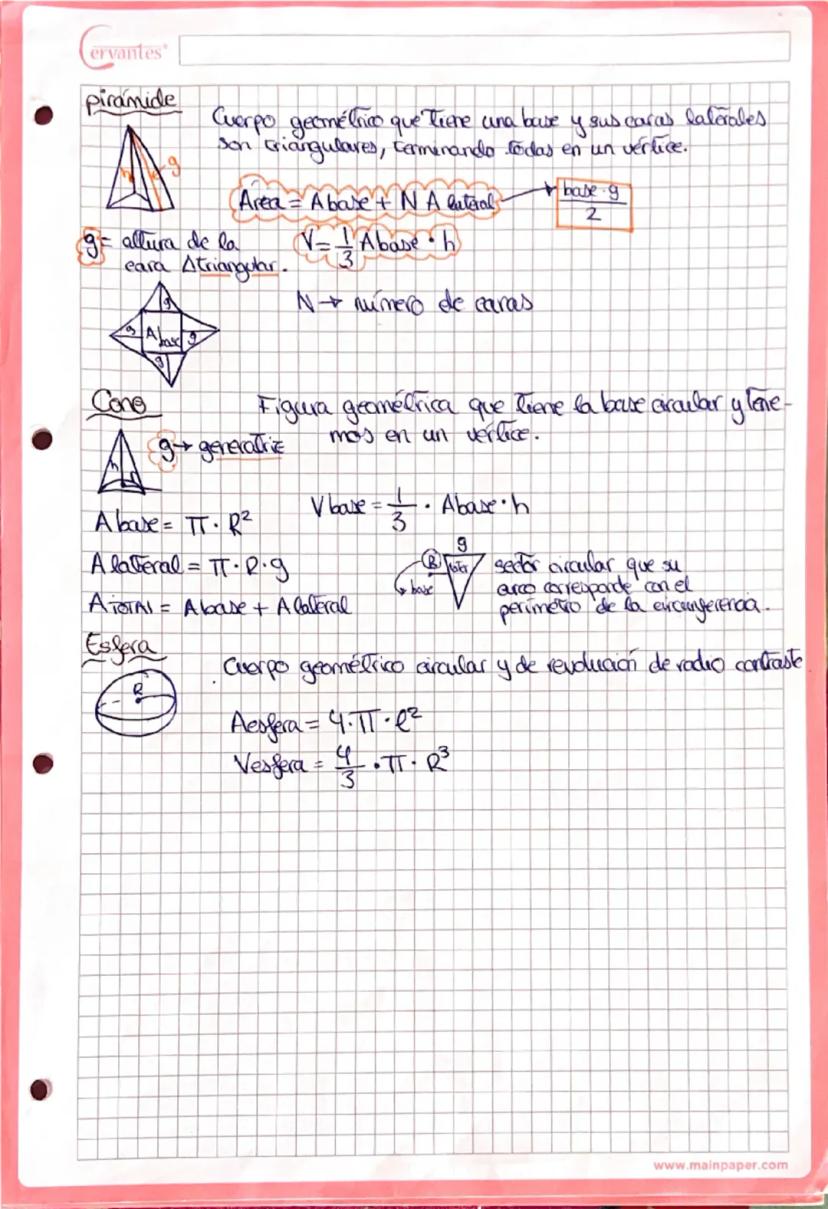 Cervantes
pirámide
Cuerpo geométrico que tiene una base y sus caras laterales
son triangulares, terminando todas en un vértice.
h g
Área = Abase + N A lateral → base · g / 2
g = altura de la
cara Δtriangular.
V = 1/3 Abase · h
N → número de caras
g
g Abase g
g
Cono
Figura geométrica que tiene la base circular y tene-
mos en un vértice.
h
g → generatriz
Abase = π · R²
Vbase = 1/3 · Abase · h
A lateral = π · R · g
A TOTAL = Abase + A lateral
g
R
base
sector circular que su
arco corresponde con el
perímetro de la circunferencia.
Esfera
Cuerpo geométrico circular y de revolución de radio contraste
R
Aesfera = 4·π·r²
Vesfera = 4/3 · π · R³
www.mainpaper.com